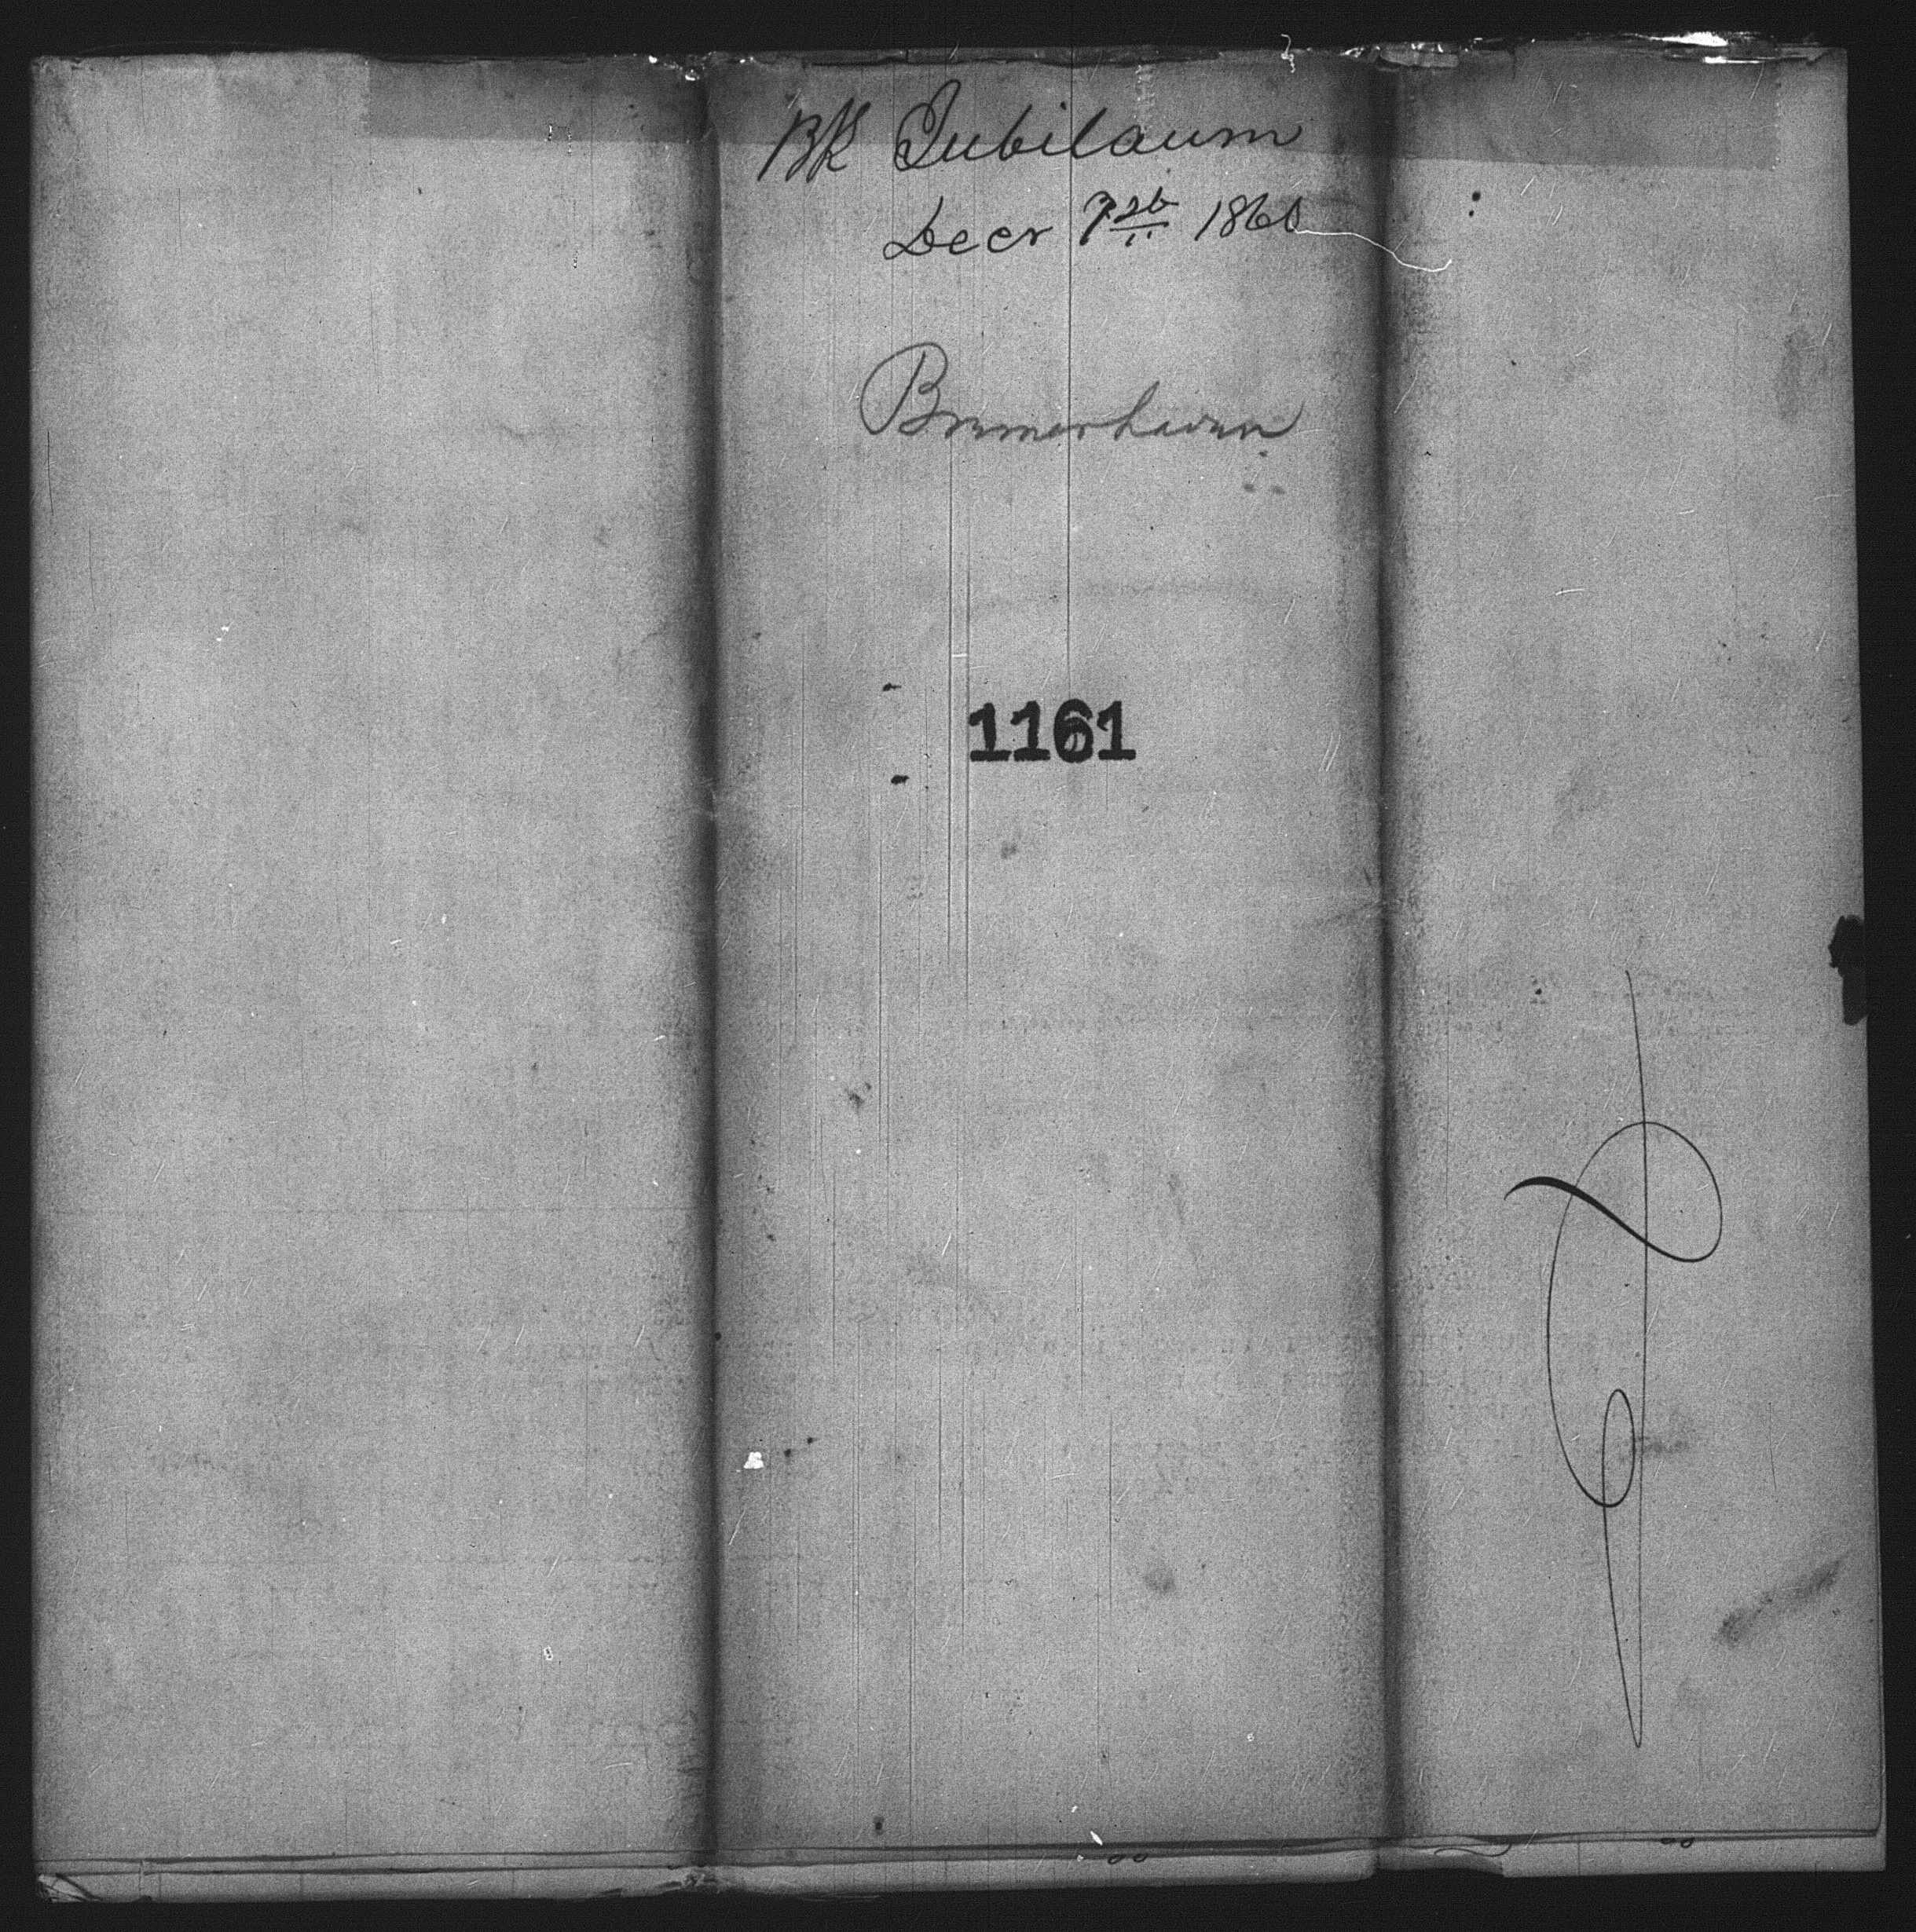 BK Jubilaum
Decr 1860
Bremerhaven
1161